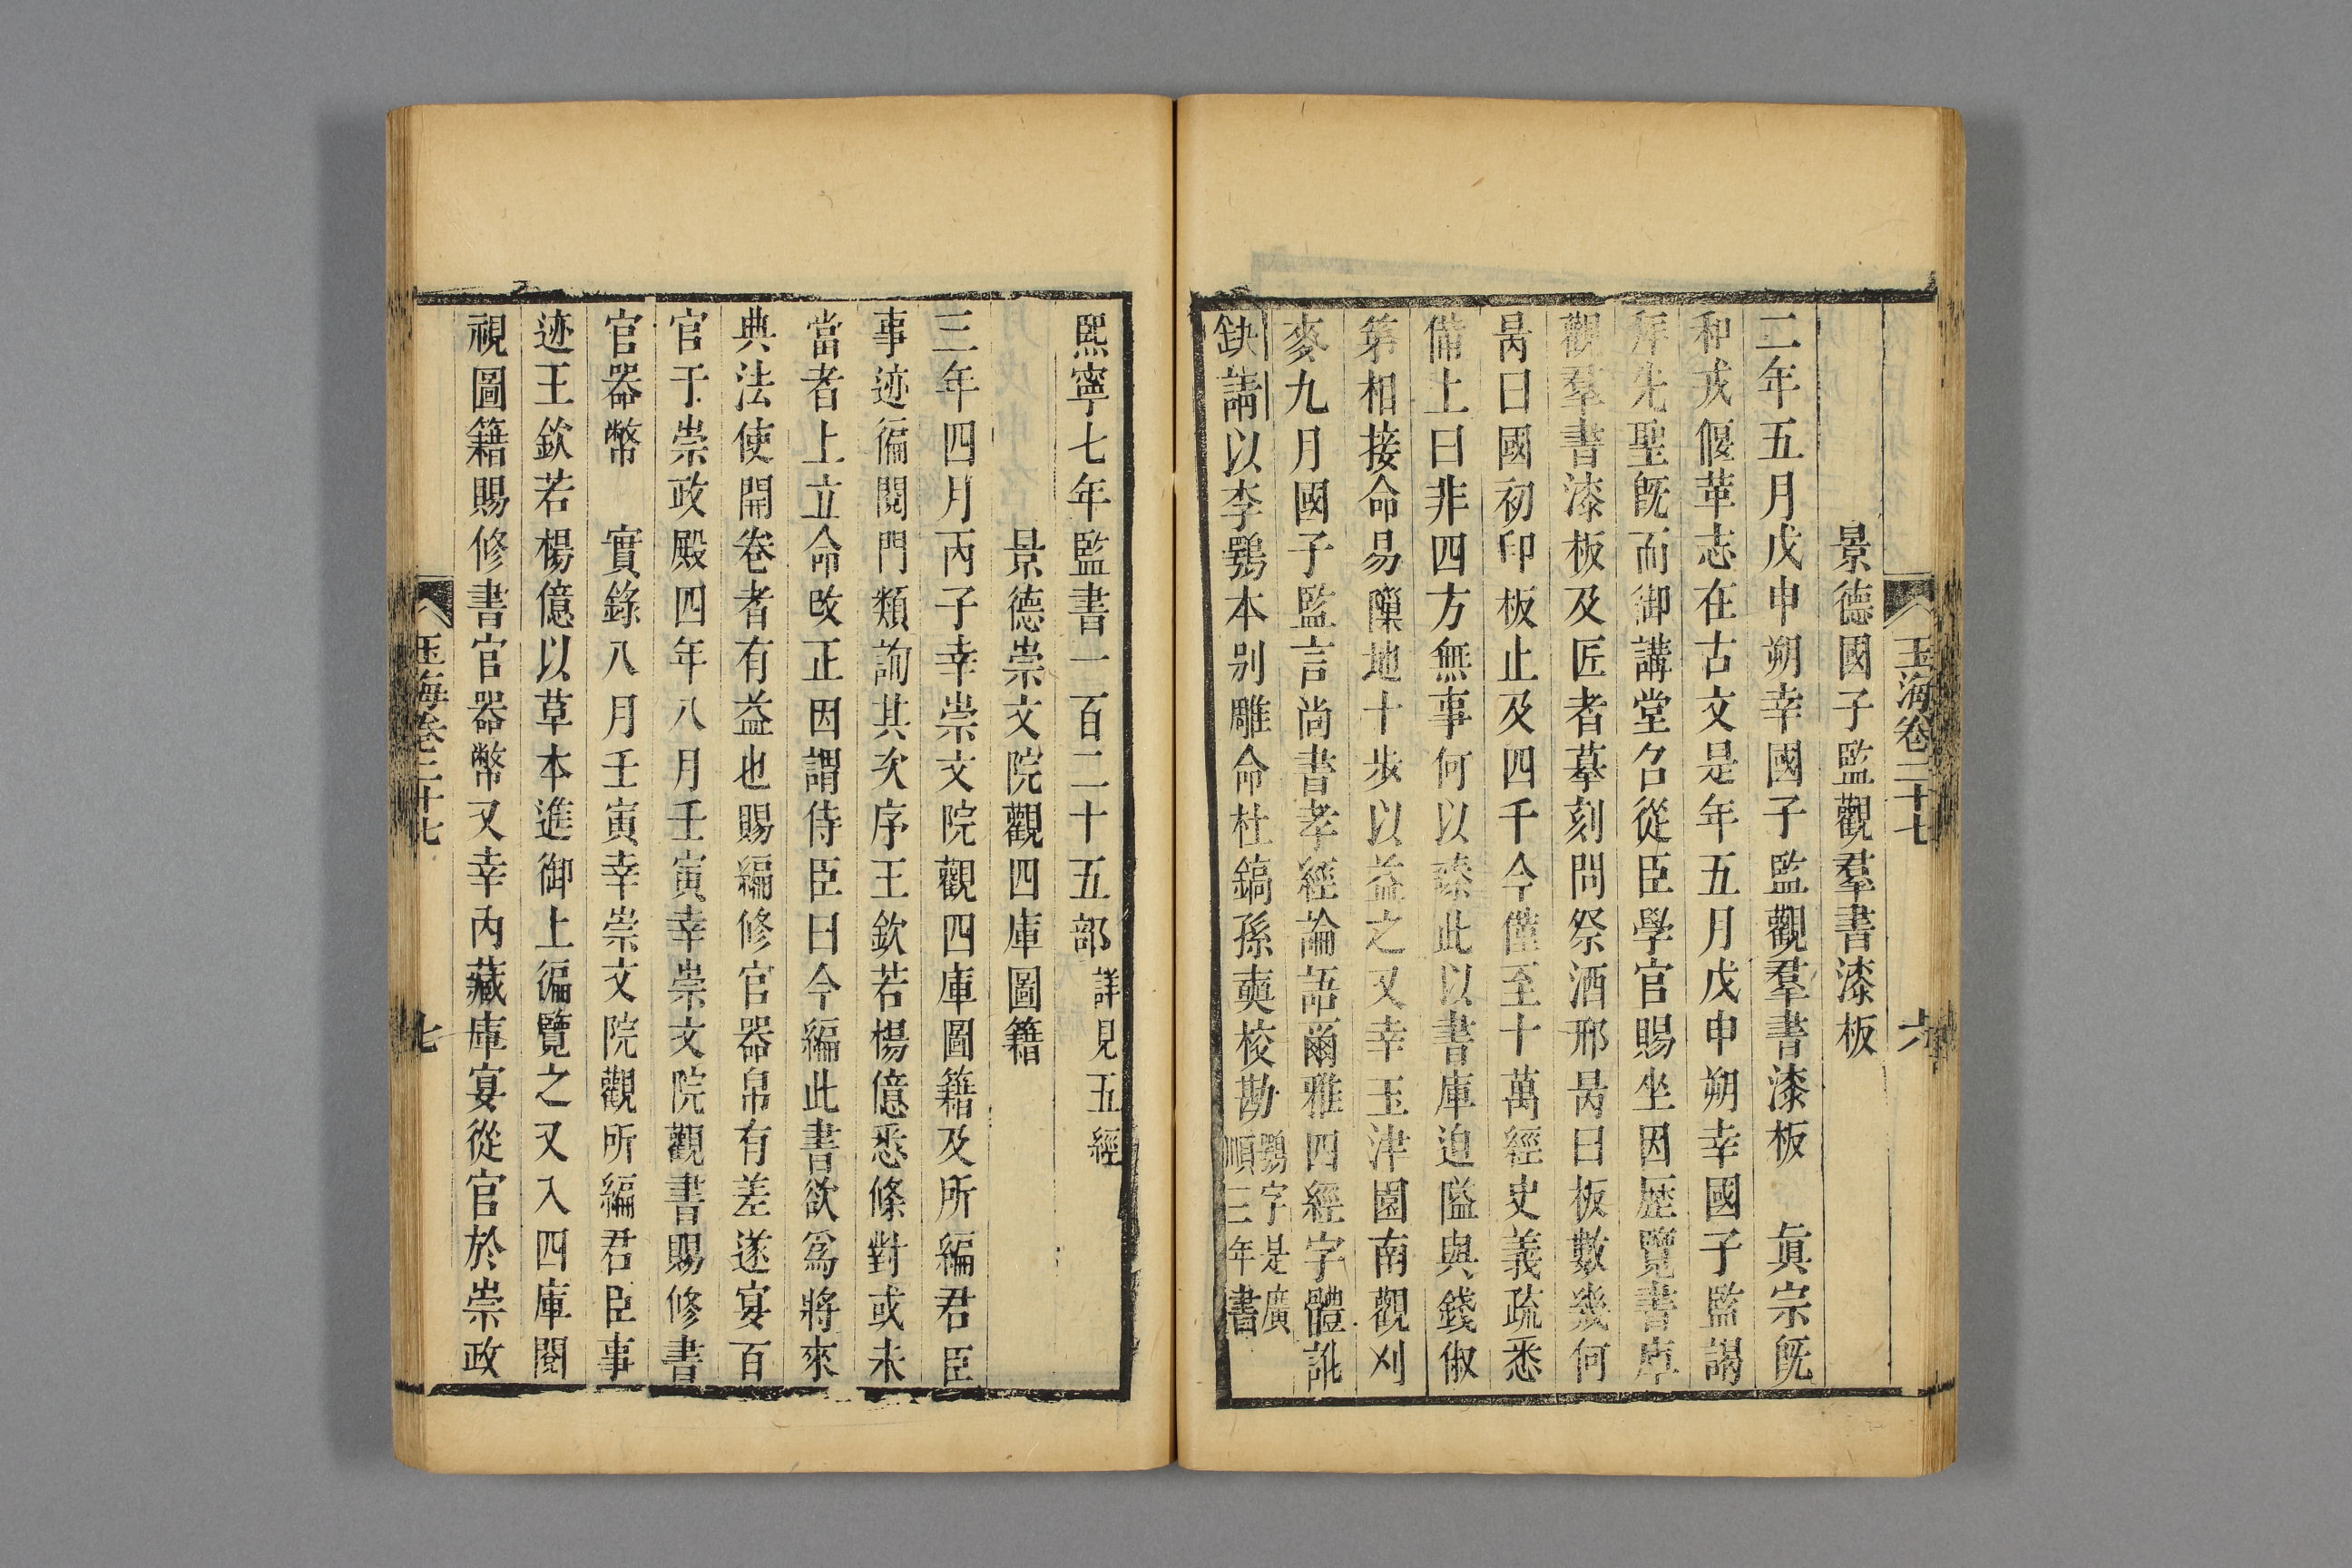 玉海卷二十七
六
景德國子監觀羣書漆板
二年五月戊申朔幸國子監觀羣書漆板 眞宗旣
和戎偃革志在古文是年五月戊申朔幸國子監謁
拜先聖旣而御講堂召從臣學官賜坐因歷覽書庫
觀羣書漆板及匠者摹刻問祭酒邢昺曰板數幾何
昺曰國初印板止及四千今僅至十萬經史義疏悉
備上曰非四方無事何以臻此以書庫迫隘與錢俶
第相接命易隟地十步以益之又幸玉津園南觀刈
麥九月國子監言尚書孝經論語爾雅四經字體訛
缺請以李鶚本别雕命杜鎬孫奭校勘
鶚字是廣
順三年書
熙寧七年監書一百二十五部
詳見五經
景德崇文院觀四庫圖籍
三年四月丙子幸崇文院觀四庫圖籍及所編君臣
事迹徧閱門類詢其次序王欽若楊億悉條對或未
當者上立命改正因謂侍臣曰今編此書欲爲將來
典法使開卷者有益也賜編修官器帛有差遂宴百
官于崇政殿四年八月壬寅幸崇文院觀書賜修書
官器幣 實錄八月壬寅幸崇文院觀所編君臣事
迹王欽若楊億以草本進御上徧覽之又入四庫閱
視圖籍賜修書官器幣又幸內藏庫宴從官於崇政
玉海卷二十七
七